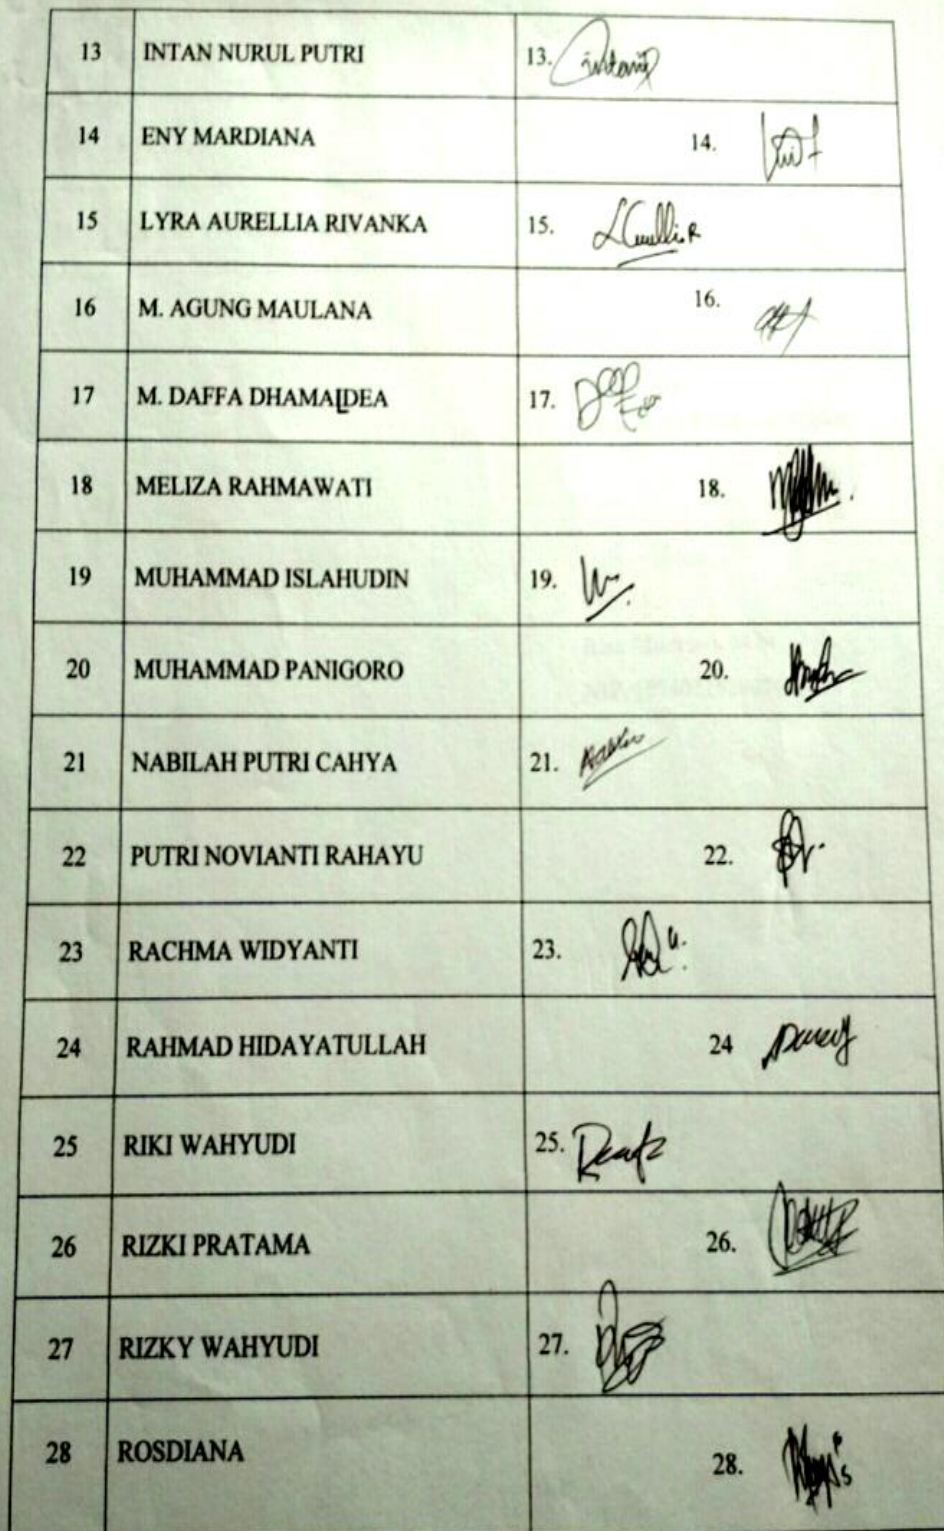 13 INTAN NURUL PUTRI 13.
14 ENY MARDIANA 14.
15 LYRA AURELLIA RIVANKA 15.
16 M. AGUNG MAULANA 16.
17 M. DAFFA DHAMALDEA 17.
18 MELIZA RAHMAWATI 18.
19 MUHAMMAD ISLAHUDIN 19.
20 MUHAMMAD PANIGORO 20.
21 NABILAH PUTRI CAHYA 21.
22 PUTRI NOVIANTI RAHAYU 22.
23 RACHMA WIDYANTI 23.
24 RAHMAD HIDAYATULLAH 24
25 RIKI WAHYUDI 25.
26 RIZKI PRATAMA 26.
27 RIZKY WAHYUDI 27.
28 ROSDIANA 28.